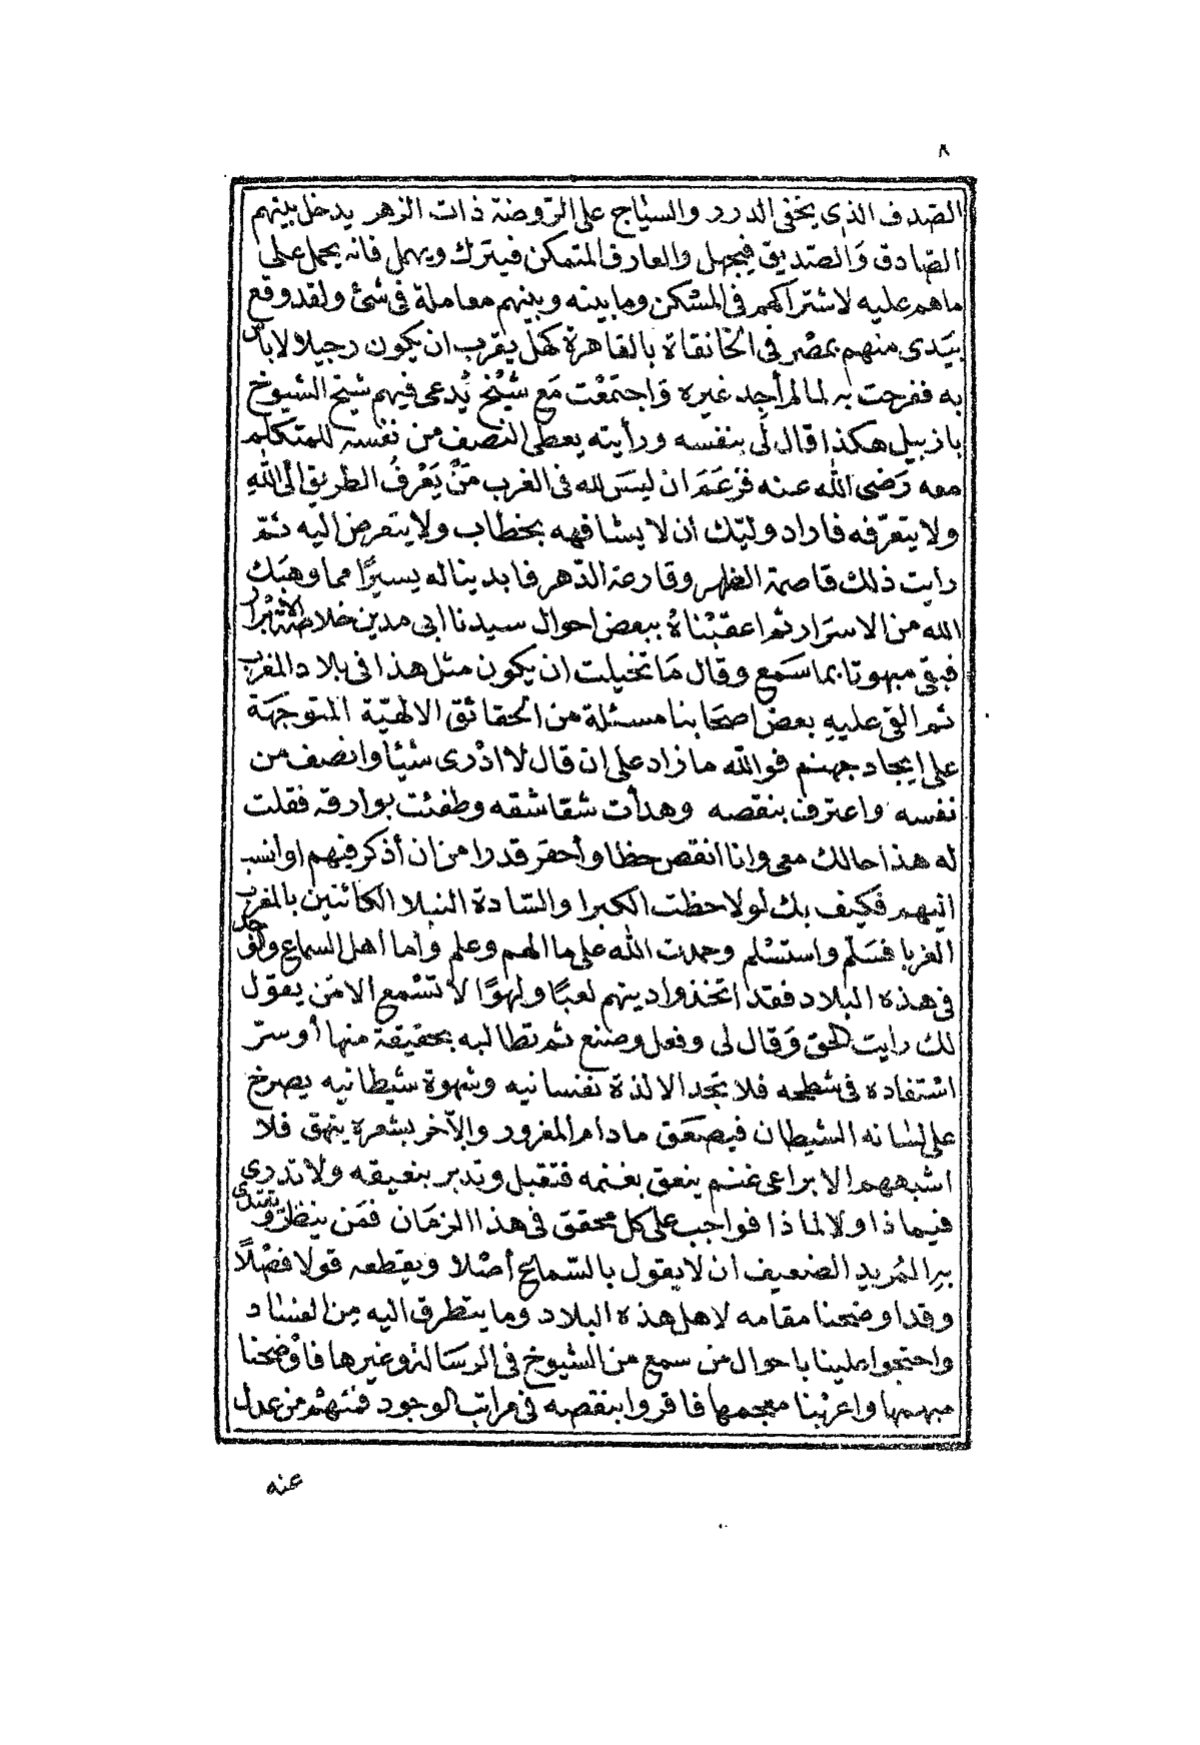 ٨
الصّدف الذي يخفي الدرر والسياج على الرّوضة ذات الزهر يدخل بينهم
الصّادق وَالصّديق فيجهل والعارف المتمكن فيترك ويهمل فانه يحمل على
ماهم عليه لاشتراكهم في المسْكن وما بينه وبينهم معاملة في شئ ولقد وقع
بيَدى منهم بمصْر في الخانقاة بالقاهرة كهْل يقرب ان يكون رجيلا لا باس
به ففرحت به لما لم أجد غيره وَاجتمعْت مَع شيْخ يُدعى فيهم شيخ الشيوخ
باربيل هكذا قال لي بنفسه ورأيته يعطى النصف من نفسه للمتكلم
معه رَضى الله عنه فزعَمَ ان ليسَ لله في الغرب مَنْ يَعْرفُ الطريق الى اللهِ
ولا يتعرّفه فاراد وليّك ان لا يشافهه بخطاب ولا يتعرض اليه ثمّ
رايت ذلك قاصمة الظهر وقارعة الدّهر فابدينا له يسيرًا مما وهبَك
الله من الاسرَار ثم اعقبْناهُ ببعض احوال سيدنا ابى مدين خلاصة الابْرار
فبقى مبهوتا بما سَمع وقال مَا تخيلت ان يكون مثل هذا في بلاد المغرب
ثم القى عليهِ بعض اصحَابنا مسئلة من الحقائق الالهيّة المتوجهَة
على ايجاد جهنم فوالله ما زاد على ان قال لا ادْرى شيْئا وانصف من
نفسه واعترف بنقصه وهدأت شقاشقه وطفئت بوارقه فقلت
له هذا حالك معى وانا انقص حظا وأحقر قدرا من ان أذكر فيهم او انسب
اليهم فكيف بك لو لاحظت الكبرا والسّادة النبلا الكائنين بالمغرب
الغربا فسَلّم واستسْلم وحمدت الله على ما الهم وعلم وأما أهل السماع والوجد
في هذه البلاد فقد اتخذوا دينهم لعبًا ولهوًا لا تسْمع الا مَن يقول
لك رايت الحق وَقال لى وفعل وصَنع ثم تطالبه بحقيقة منها أو سرّ
اسْتفاده في شطحه فلا تجد الا لذة نفسانيه وشهوة شيطانيه يصرخ
على لسَانه الشيطان فيصعَق مادام المغرور والآخر بشعره ينهق فلا
اشبههم الا براعى غنم ينعق بغنمه فتقبل وتدبر بنعيقه ولا تدرى
فيماذا ولا لماذا فواجب على كل محقق في هذا الزمَان فمَن ينظر ويقتدى
بهِ المُريد الضعيف ان لا يقول بالسّماع أصْلا ويقطعه قولا فصْلًا
وقد اوضحنا مقامه لاهل هذه البلاد وما يتطرق اليه مِن الفسَاد
واحتجوا علينا باحوال من سمع من الشيوخ في الرسَالة وغيرها فاوْضحنا
مبهمها واعربنا معجمها فاقروا بنقصه في مراتب الوجود فمنهم من عدل
عنه